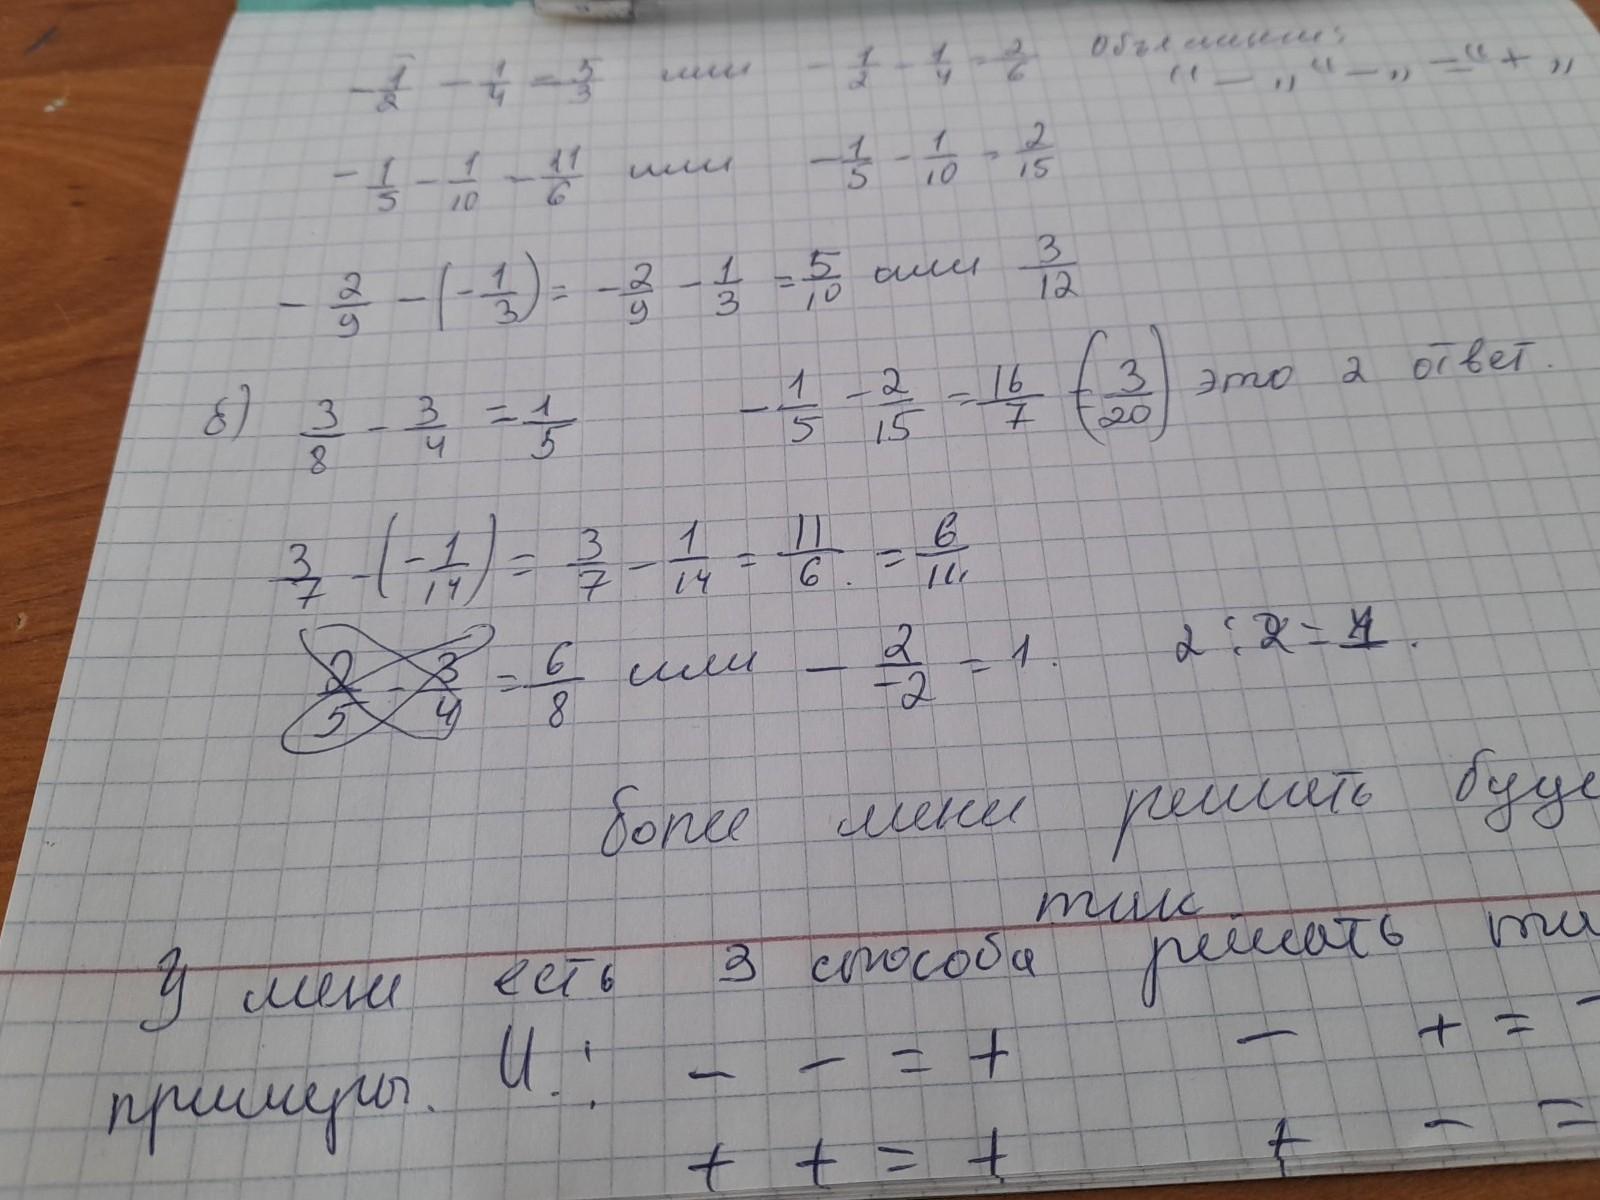 -1/2 - 1/4 = 5/3 или -1/2 - 1/4 = 2/6 Объяснение:
"-" "-" = "+"
-1/5 - 1/10 - 11/6 или -1/5 - 1/10 = 2/15
-2/9 - (-1/3) = -2/9 - 1/3 = 5/10 или 3/12
б) 3/8 - 3/4 = 1/5 -1/5 - 2/15 = 16/7 (-3/20) это 2 ответ.
3/7 - (-1/14) = 3/7 - 1/14 = 11/6. = 6/14
2/5 - 3/4 = 6/8 или -2/-2 = 1. 2 : 2 = 1.
более мени решать
так
У мене есть 3 способа решать
примеры. И.: - - = + - + = -
+ + = + + - =